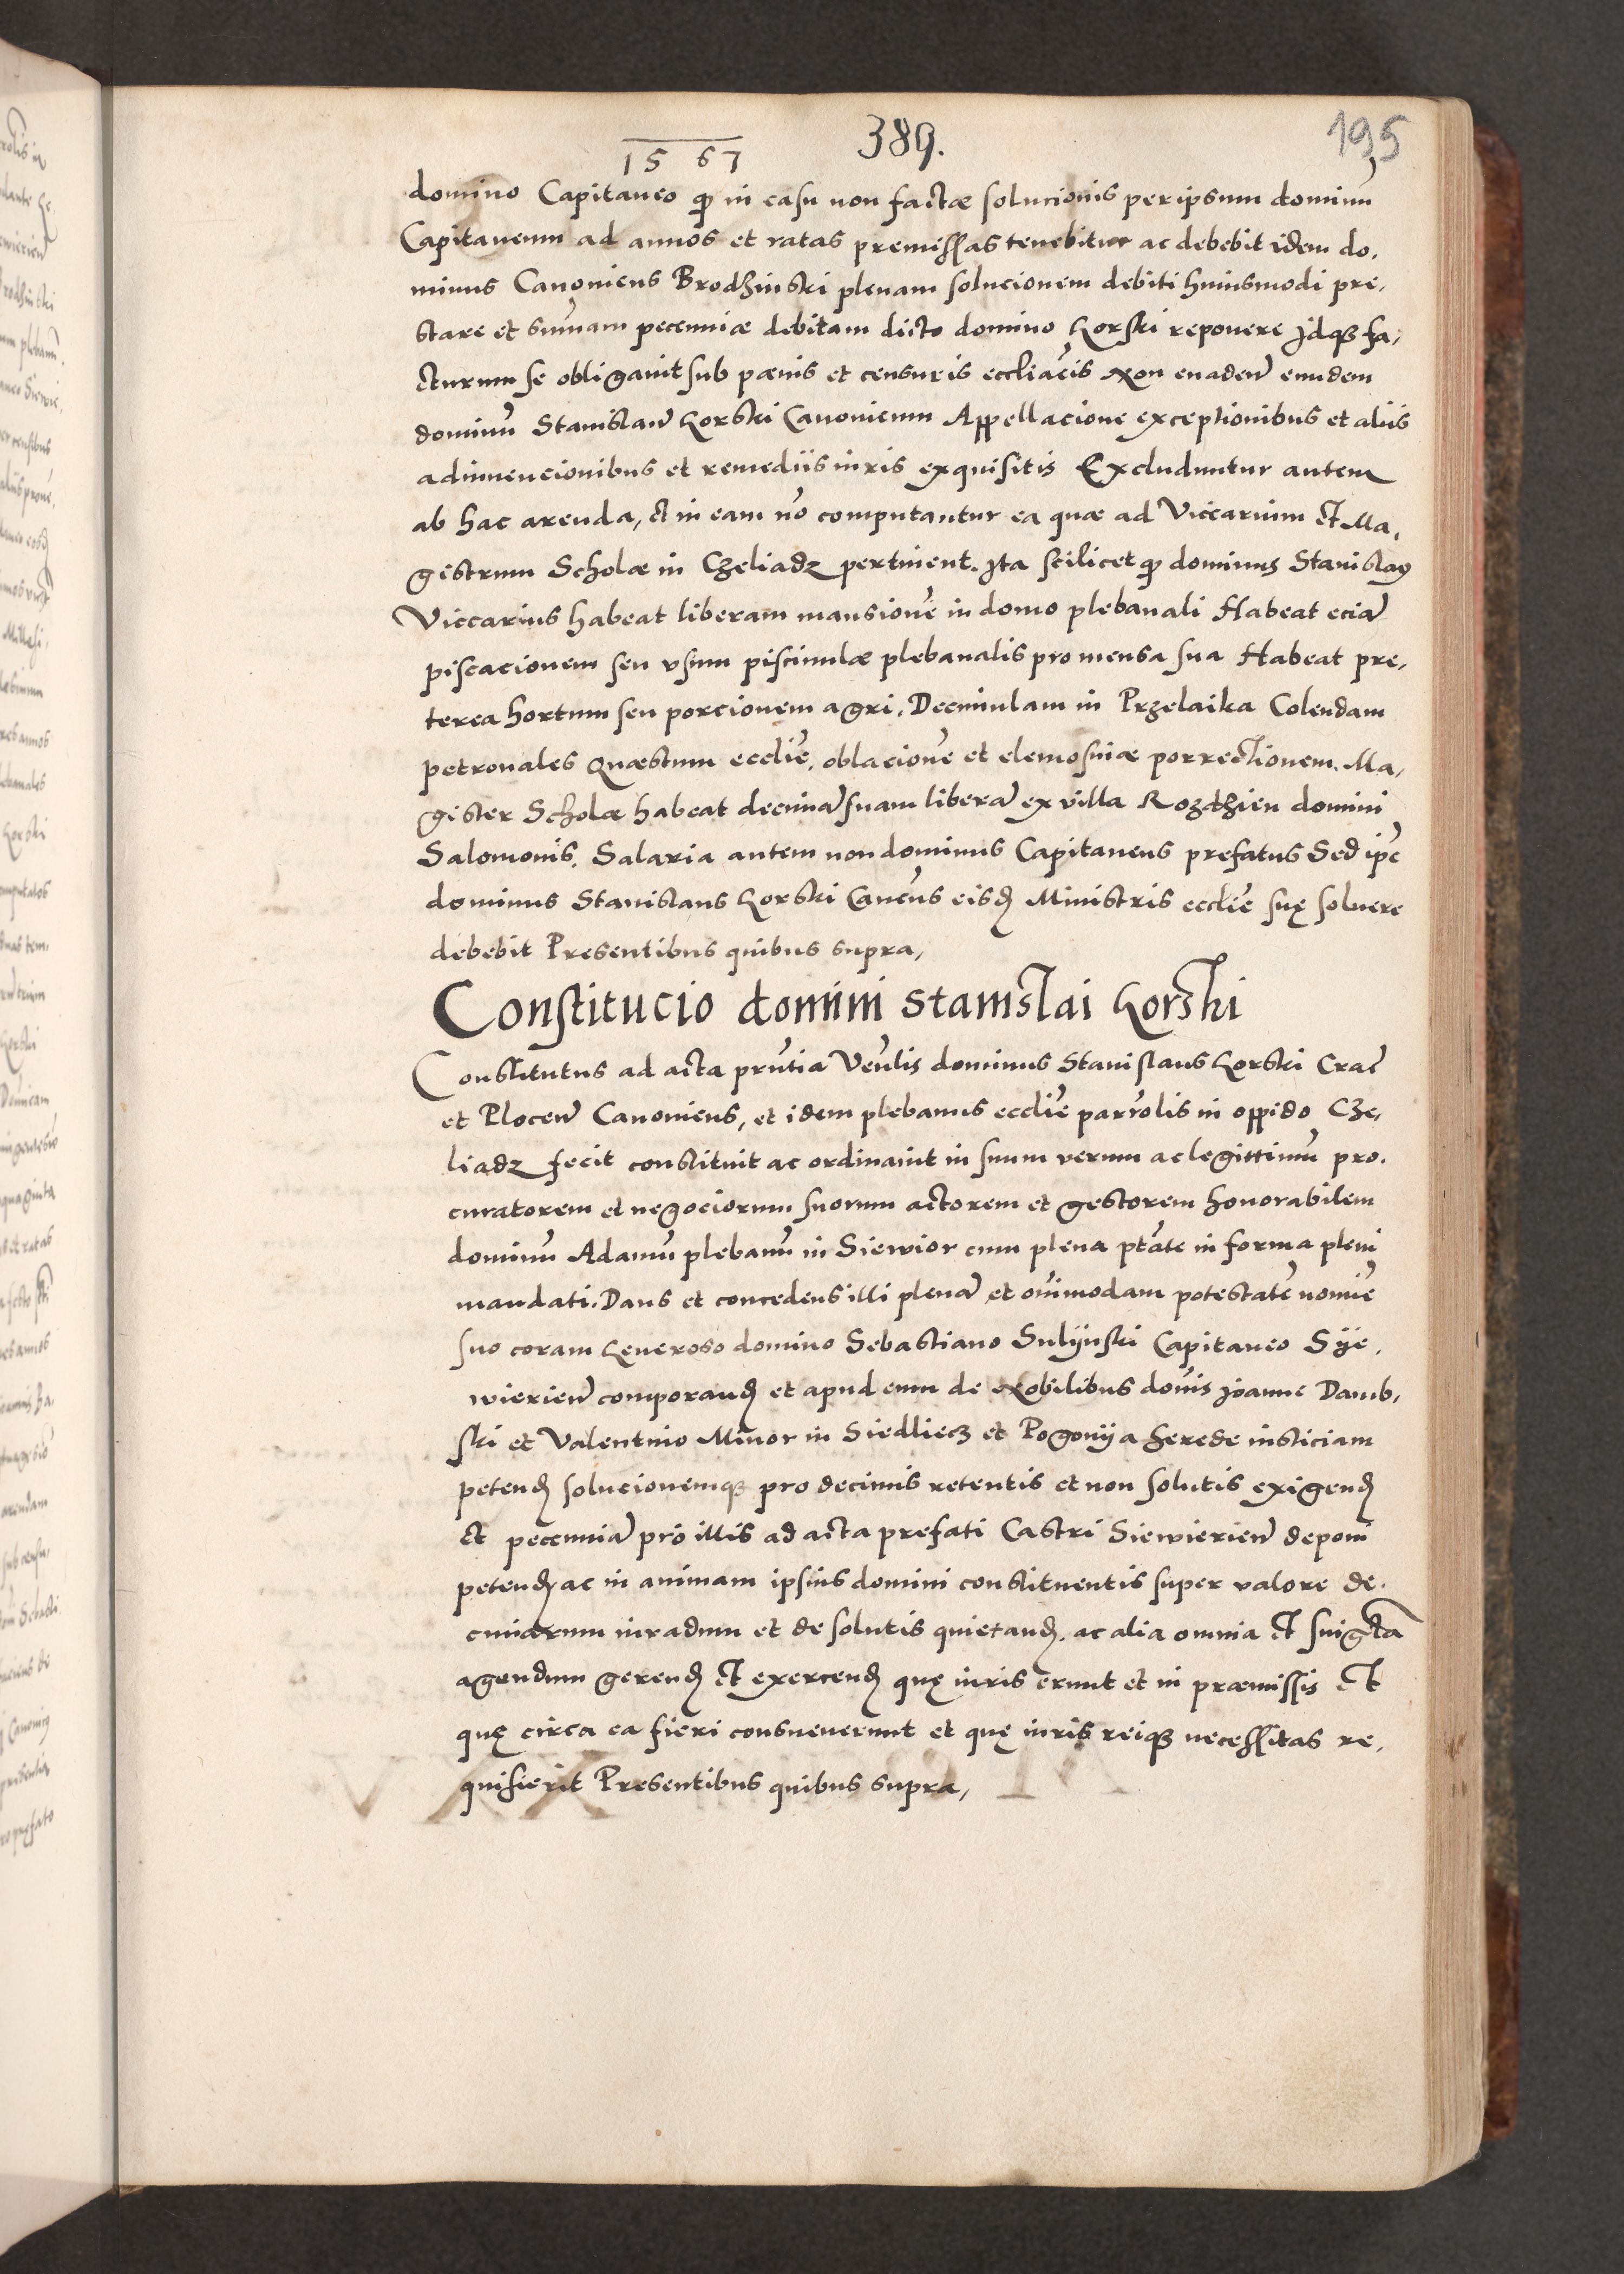 389.
195
1567
domino Capitaneo qp in casu non factæ solucionis per ipsum dominū
Capitaneum ad annos et ratas premissas tenebitur ac debebit idem do,
minus Canonicus Brodzinski plenam solucionem debiti huiusmodi pre,
stare et sum̄am pecuniæ debitam dicto domino Gorski reponere Idq3 fa,
cturum se obligauit sub pœnis et censuris eccl̄iacis Non euaden̄ eundem
dominū Stanislaū Gorski Canonicum Appellacione exceptionibus et aliis
adinuencionibus et remediis iuris exquisitis Excluduntur autem
ab hac arenda, et in eam nō computantur ea quæ ad Viccarium et Ma,
gistrum Scholæ in Czeliadz pertinent. Ita scilicet qp dominus Stanislaus
Viccarius habeat liberam mansionē in domo plebanali Habeat eciā
piscacionem seu vsum piscinulæ plebanalis pro mensa sua Habeat pre,
terea hortum seu porcionem agri, Decimulam in Przelaika Colendam
petronales Quæstum eccl̄ie, oblacionē et elemosinæ porrectionem. Ma,
gister Scholæ habeat decimā suam liberā ex villa Rozdzien domini
Salomonis. Salaria autem non dominus Capitaneus prefatus Sed ipe
dominus Stanislaus Gorski Can̄cus eisd̄ Ministris eccl̄ie suę soluere
debebit Presentibus quibus supra,
Constitucio domini Stanislai Gorski
Constitutus ad acta pn̄tia Ven̄lis dominus Stanislaus Gorski Crac̄
et Plocen̄ Canonicus, et idem plebanus eccl̄ie parrolis in oppido Cze,
liadz fecit constituit ac ordinauit in suum verum ac legittimū pro,
curatorem et negociorum suorum actorem et gestorem honorabilem
dominū Adamū plebanū in Siewior cum plena ptāte in forma pleni
mandati. Dans et concedens illi plenā et om̄imodam potestatē nomīe
suo coram Generoso domino Sebastiano Sulijnski Capitaneo Sije,
wierien̄ comporand̄ et apud eum de Nobilibus dom̄is Joanne Damb,
ski et Valentino Minor in Siedliecz et Pogonija herede iusticiam
petend̄ solucionemq3 pro decimis retentis et non solutis exigend̄
et pecuniā pro illis ad acta prefati Castri Siewierien̄ deponi
petend̄ ac in animam ipsius domini constituentis super valore de,
cimarum iuradum et de solutis quietand̄. ac alia omnia et singla
agendum gerend̄ et exercend̄ quę iuris erunt et in præmissis et
quę circa ea fieri consueuerunt et quę iuris reiq3 necessitas re,
quisierit Presentibus quibus supra,